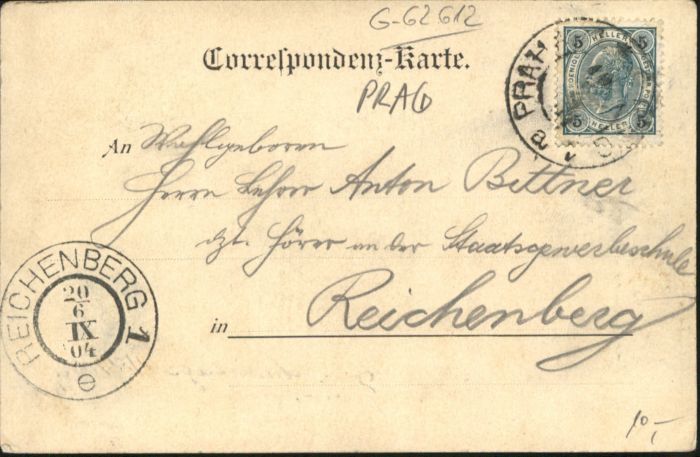 G-62 612
Correspondenz-Karte.
PRAG
5 HELLER 5
5 HELLER 5
PRAH
a
An Wohlgeboren
Herrn Lehrer Anton Bittner
dzt. Hörer an der Staatsgewerbeschule
in Reichenberg
REICHENBERG 1
20
6
IX
04
e
10,-